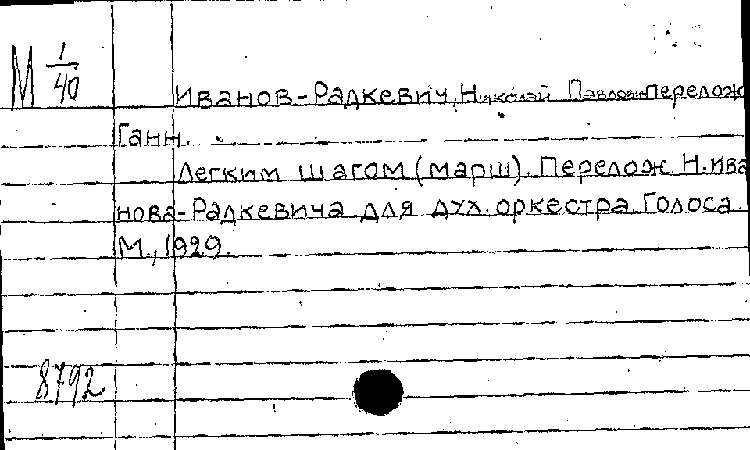 М 1/40
Иванов-Радкевич, Николай Павлович перелож
Ганн.
Легким шагом (марш). Перелож Н. Ива
нова-Радкевича для дух. оркестра. Голоса.
М., 1929.
8792